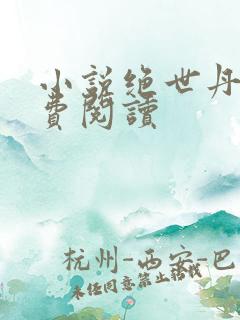 小說绝世丹
費閱讀
杭州-西安-巴
未经同意禁止转载